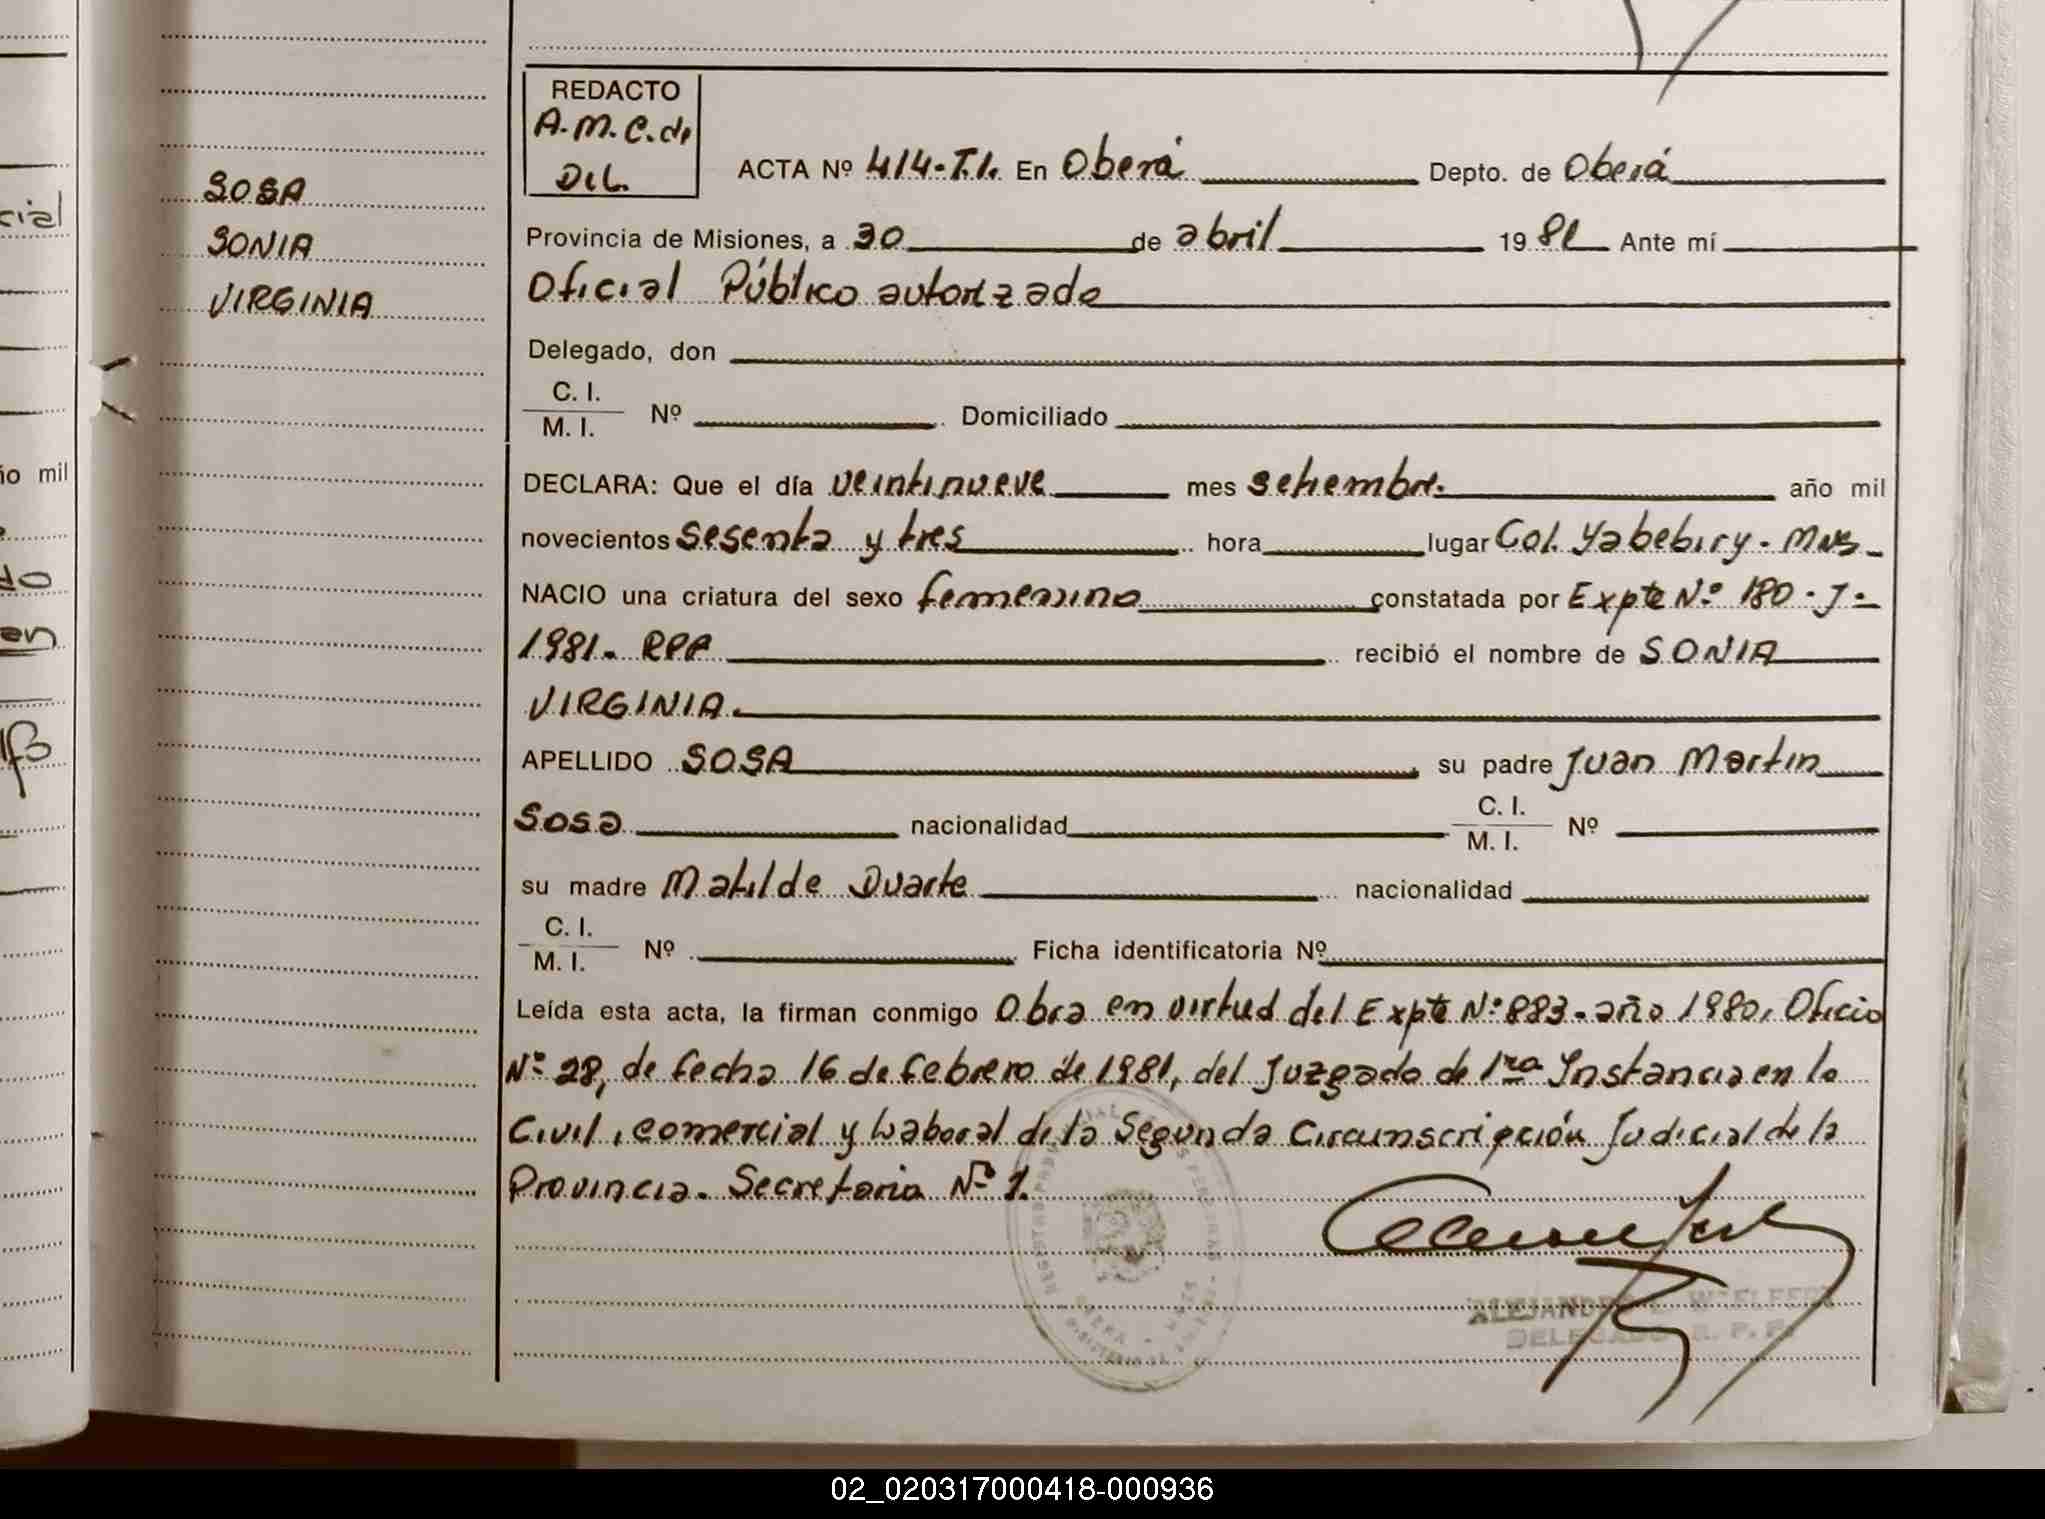 REDACTO
A.M.C.de
DeL.
SOSA
SONIA
VIRGINIA
ACTA Nº 414-T.I. En Oberá Depto. de Oberá
Provincia de Misiones, a 30 de abril 1981 Ante mí
Oficial Público autorizado
Delegado, don
C. I.
M. I. Nº Domiciliado
DECLARA: Que el día veintinueve mes setiembre. año mil
novecientos sesenta y tres hora lugar Col. Yabebiry - Mnes
NACIO una criatura del sexo femenino constatada por Expte Nº 180-J-
1981. RPP recibió el nombre de SONIA
VIRGINIA.
APELLIDO SOSA su padre Juan Martin
Sosa nacionalidad C. I. M. I. Nº
su madre Matilde Duarte nacionalidad
C. I.
M. I. Nº Ficha identificatoria Nº
Leída esta acta, la firman conmigo Obra en virtud del Expte Nº 883-año 1980, Oficio
Nº 28, de fecha 16 de febrero de 1981, del Juzgado de 1ra Instancia en lo
Civil, comercial y Laboral de la Segunda Circunscripción Judicial de la
Provincia. Secretaria Nº 1.
ALEJANDRO
DELEGADO R. P. P.
cial
ño mil
do
en
02_020317000418-000936